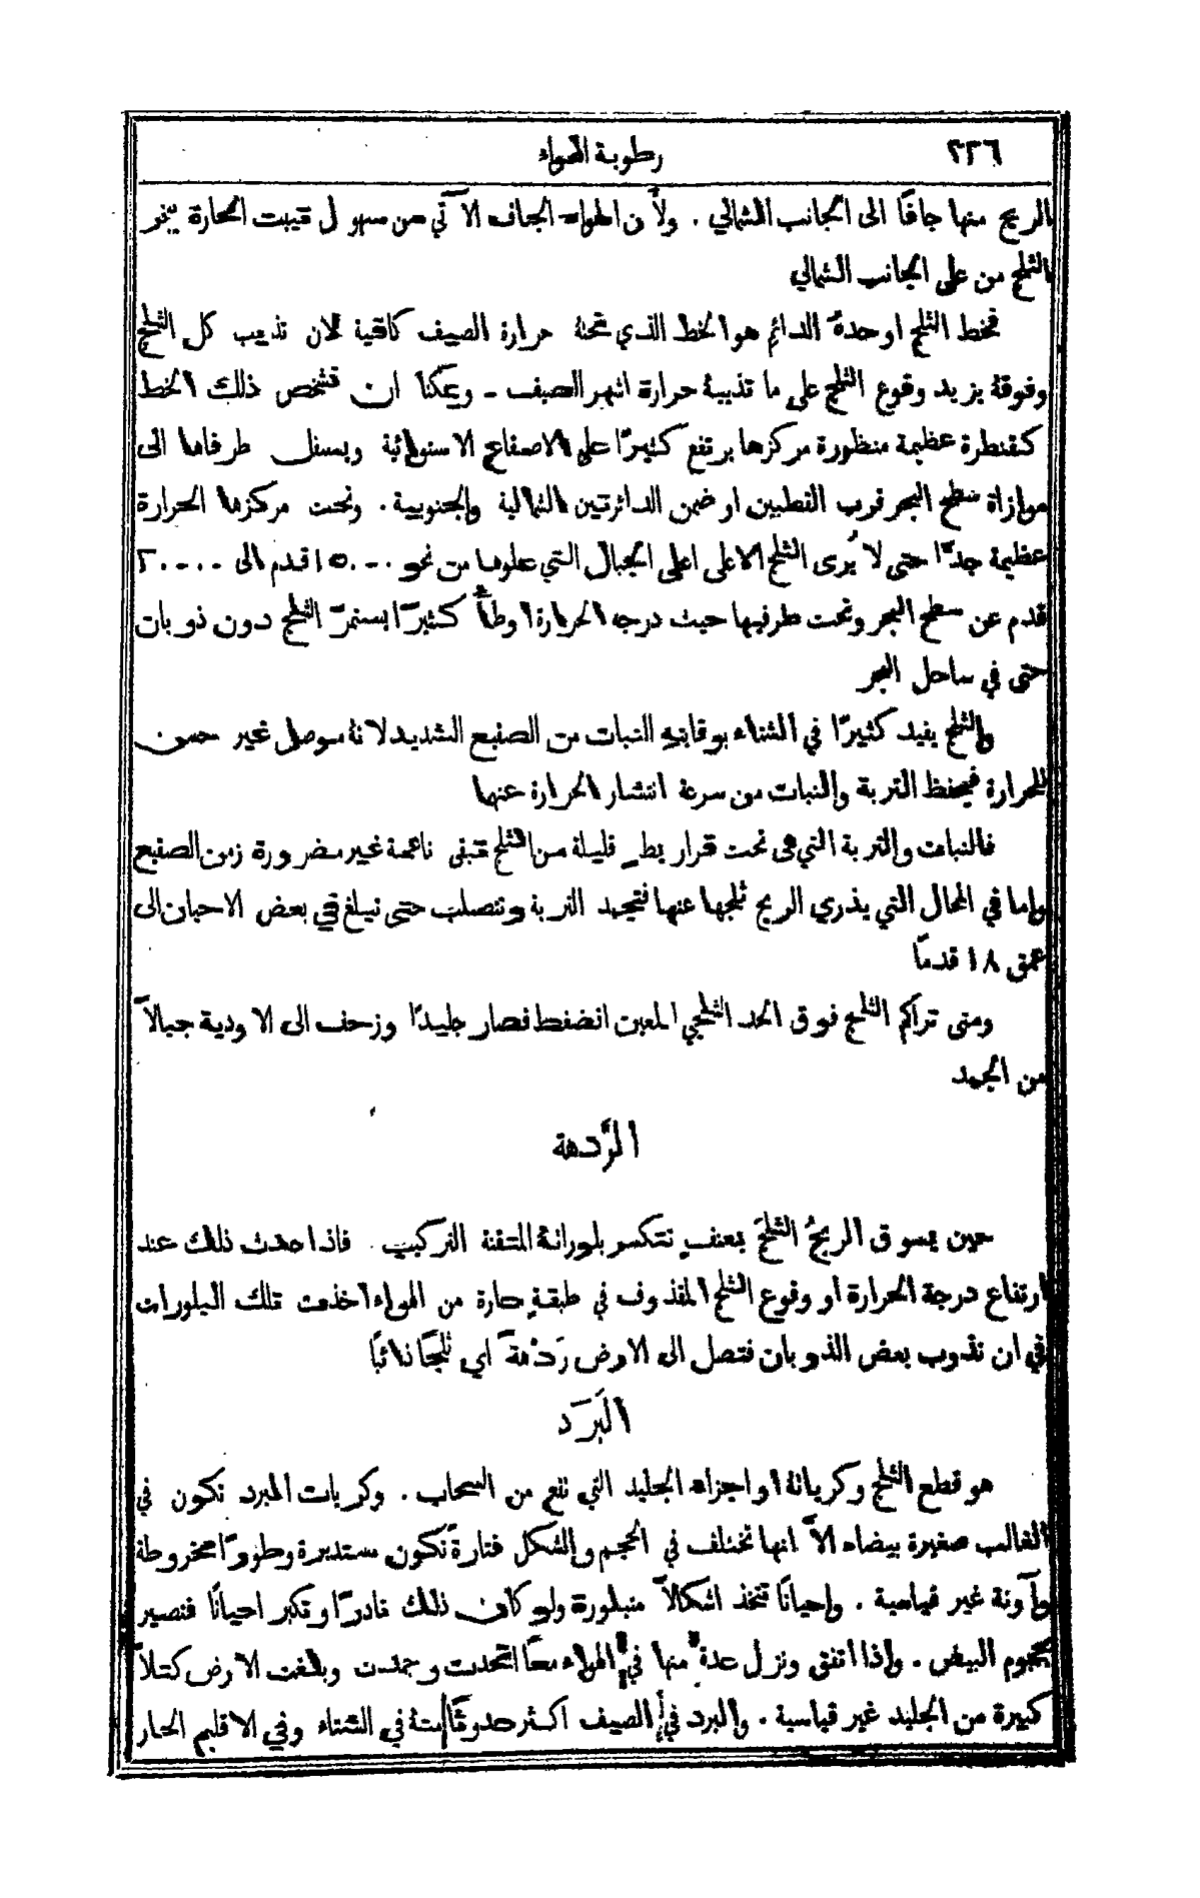 ٢٢٦
رطوبة الهواء
الريح منها جافًا الى الجانب الشمالي . ولأن الهواء الجاف الآتي من سهول تيبت الحارة يبخر
الثلج من على الجانب الشمالي
فخط الثلج او حدهُ الدائم هو الخط الذي تحتهُ حرارة الصيف كافية لان تذيب كل الثلج
وفوقهُ يزيد وقوع الثلج على ما تذيبهُ حرارة اشهر الصيف - ويمكنا ان نشخص ذلك الخط
كقنطرة عظيمة منظورة مركزها يرتفع كثيرًا على الاصقاع الاستوائية ويسفل طرفاها الى
موازاة سطح البحر قرب القطبين او ضمن الدائرتين الشمالية والجنوبية . وتحت مركزها الحرارة
عظيمة جدًّا حتى لا يُرى الثلج الا على اعلى الجبال التي علوها من نحو ١٥٠٠٠ قدم الى ٢٠٠٠٠
قدم عن سطح البحر وتحت طرفيها حيث درجه الحرارة اوطأ كثيرًا يستمرّ الثلج دون ذوبان
حتى في ساحل البحر
والثلج يفيد كثيرًا في الشتاء بوقايتهِ النبات من الصقيع الشديد لانهُ موصل غير حسن
للحرارة فيحفظ التربة والنبات من سرعة انتشار الحرارة عنها
فالنبات والتربة التي هي تحت قراريط قليلة من الثلج تبقى ناعمة غير مضرورة زمن الصقيع
واما في المحال التي يذري الريح ثلجها عنها فتجمد التربة وتتصلب حتى تبلغ في بعض الاحيان الى
عمق ١٨ قدمًا
ومتى تراكم الثلج فوق الحد الثلجي المعين انضغط فصار جليدًا وزحف الى الاودية جبالاً
من الجمد
الرَّدهة
حين يسوق الريحُ الثلجَ بعنفٍ تتكسر بلوراتهُ المتقنة التركيب . فاذا حدث ذلك عند
ارتفاع درجة الحرارة او وقوع الثلج المقذوف في طبقةٍ حارة من الهواء اخذت تلك البلورات
في ان تذوب بعض الذوبان فتصل الى الارض رَدْهةً اي ثلجًا ذائبًا
البَرَد
هو قطع الثلج وكرياتهُ او اجزاء الجليد التي تقع من السحاب . وكريات البرد تكون في
الغالب صغيرة بيضاء الاَّ انها تختلف في الحجم والشكل فتارةً تكون مستديرة وطورًا مخروطة
وآونة غير قياسية . واحيانًا تتخذ اشكالاً متبلورة ولو كان ذلك نادرًا وتكبر احيانًا فتصير
بحجوم البيض . واذا اتفق ونزل عدة منها في الهواء معًا اتحدت وجمدت وبلغت الارض كتلاً
كبيرة من الجليد غير قياسية . والبرد في الصيف اكثر حدوثًا منهُ في الشتاء وفي الاقليم الحار